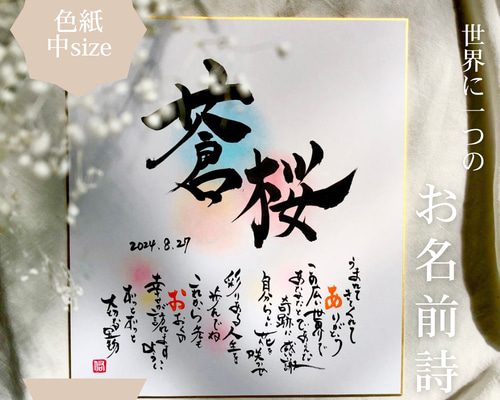 色紙
中size
世界に一つの
お名前詩
蒼桜
2024.8.27
うまれてきてくれて
ありがとう
この広い世界で
あなたとであえた
奇跡に感謝
自分らしい花を
咲かせ
彩りある人生を
歩んでね
これから先も
おおくの
幸せが訪れます
ずっとずっと
大切な宝物